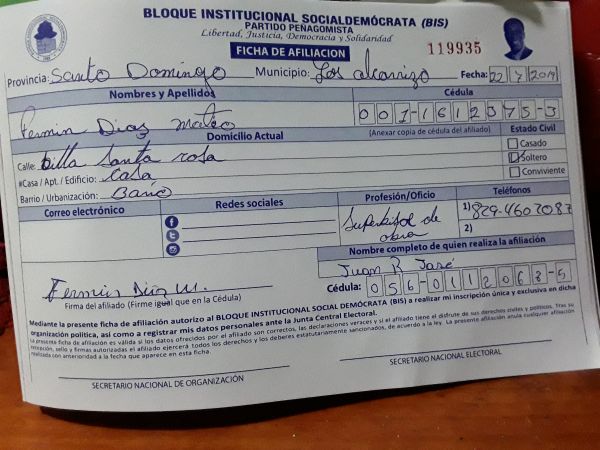 BLOQUE INSTITUCIONAL SOCIALDEMÓCRATA (BIS)
PARTIDO PEÑAGOMISTA
Libertad, Justicia, Democracia y Solidaridad
FICHA DE AFILIACION
119935
Provincia: Santo Domingo Municipio: Los alcarrizo Fecha: 22 7 2019
Nombres y Apellidos
Cédula
Fermin Diaz Mateo
001-1612375-3
Domicilio Actual
(Anexar copia de cédula del afiliado)
Estado Civil
Calle: billa Santa rosa
Casado
#Casa / Apt. / Edificio: casa
Soltero
Barrio / Urbanización: Bario
Conviviente
Correo electrónico
Redes sociales
Profesión/Oficio
Teléfonos
Superbisol de obra
1) 829-4602087
2)
Nombre completo de quien realiza la afiliación
Juan R José
Fermin Diaz M.
Cédula: 056-0112063-5
Firma del afiliado (Firme igual que en la Cédula)
Mediante la presente ficha de afiliación autorizo al BLOQUE INSTITUCIONAL SOCIAL DEMÓCRATA (BIS) a realizar mi inscripción única y exclusiva en dicha
organización política, así como a registrar mis datos personales ante la Junta Central Electoral.
La presente ficha de afiliación es válida si los datos ofrecidos por el afiliado son correctos, las declaraciones veraces y si el afiliado tiene el disfrute de sus derechos civiles y políticos. Tras su
recepción, sello y firmas autorizadas el afiliado ejercerá todos los derechos y los deberes estatutariamente sancionados, de acuerdo a la ley. La presente afiliación anula cualquier afiliación
realizada con anterioridad a la fecha que aparece en esta ficha.
SECRETARIO NACIONAL DE ORGANIZACIÓN
SECRETARIO NACIONAL ELECTORAL